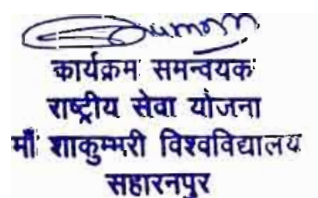 कार्यक्रम समन्वयक
राष्ट्रीय सेवा योजना
माँ शाकुम्मरी विश्वविद्यालय
सहारनपुर